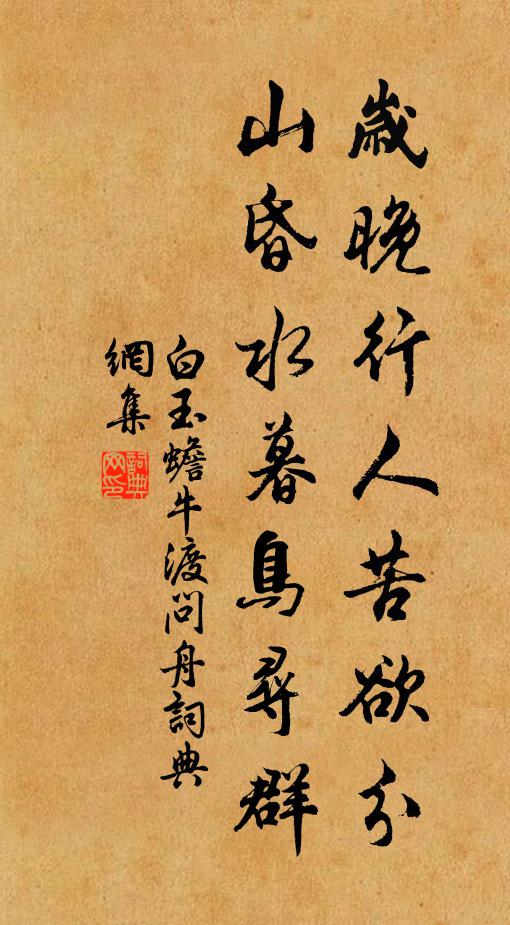 歲晚行人苦欲分
山昏水暮鳥尋群
白玉蟾牛渡問舟詞典
網集
詞典網印